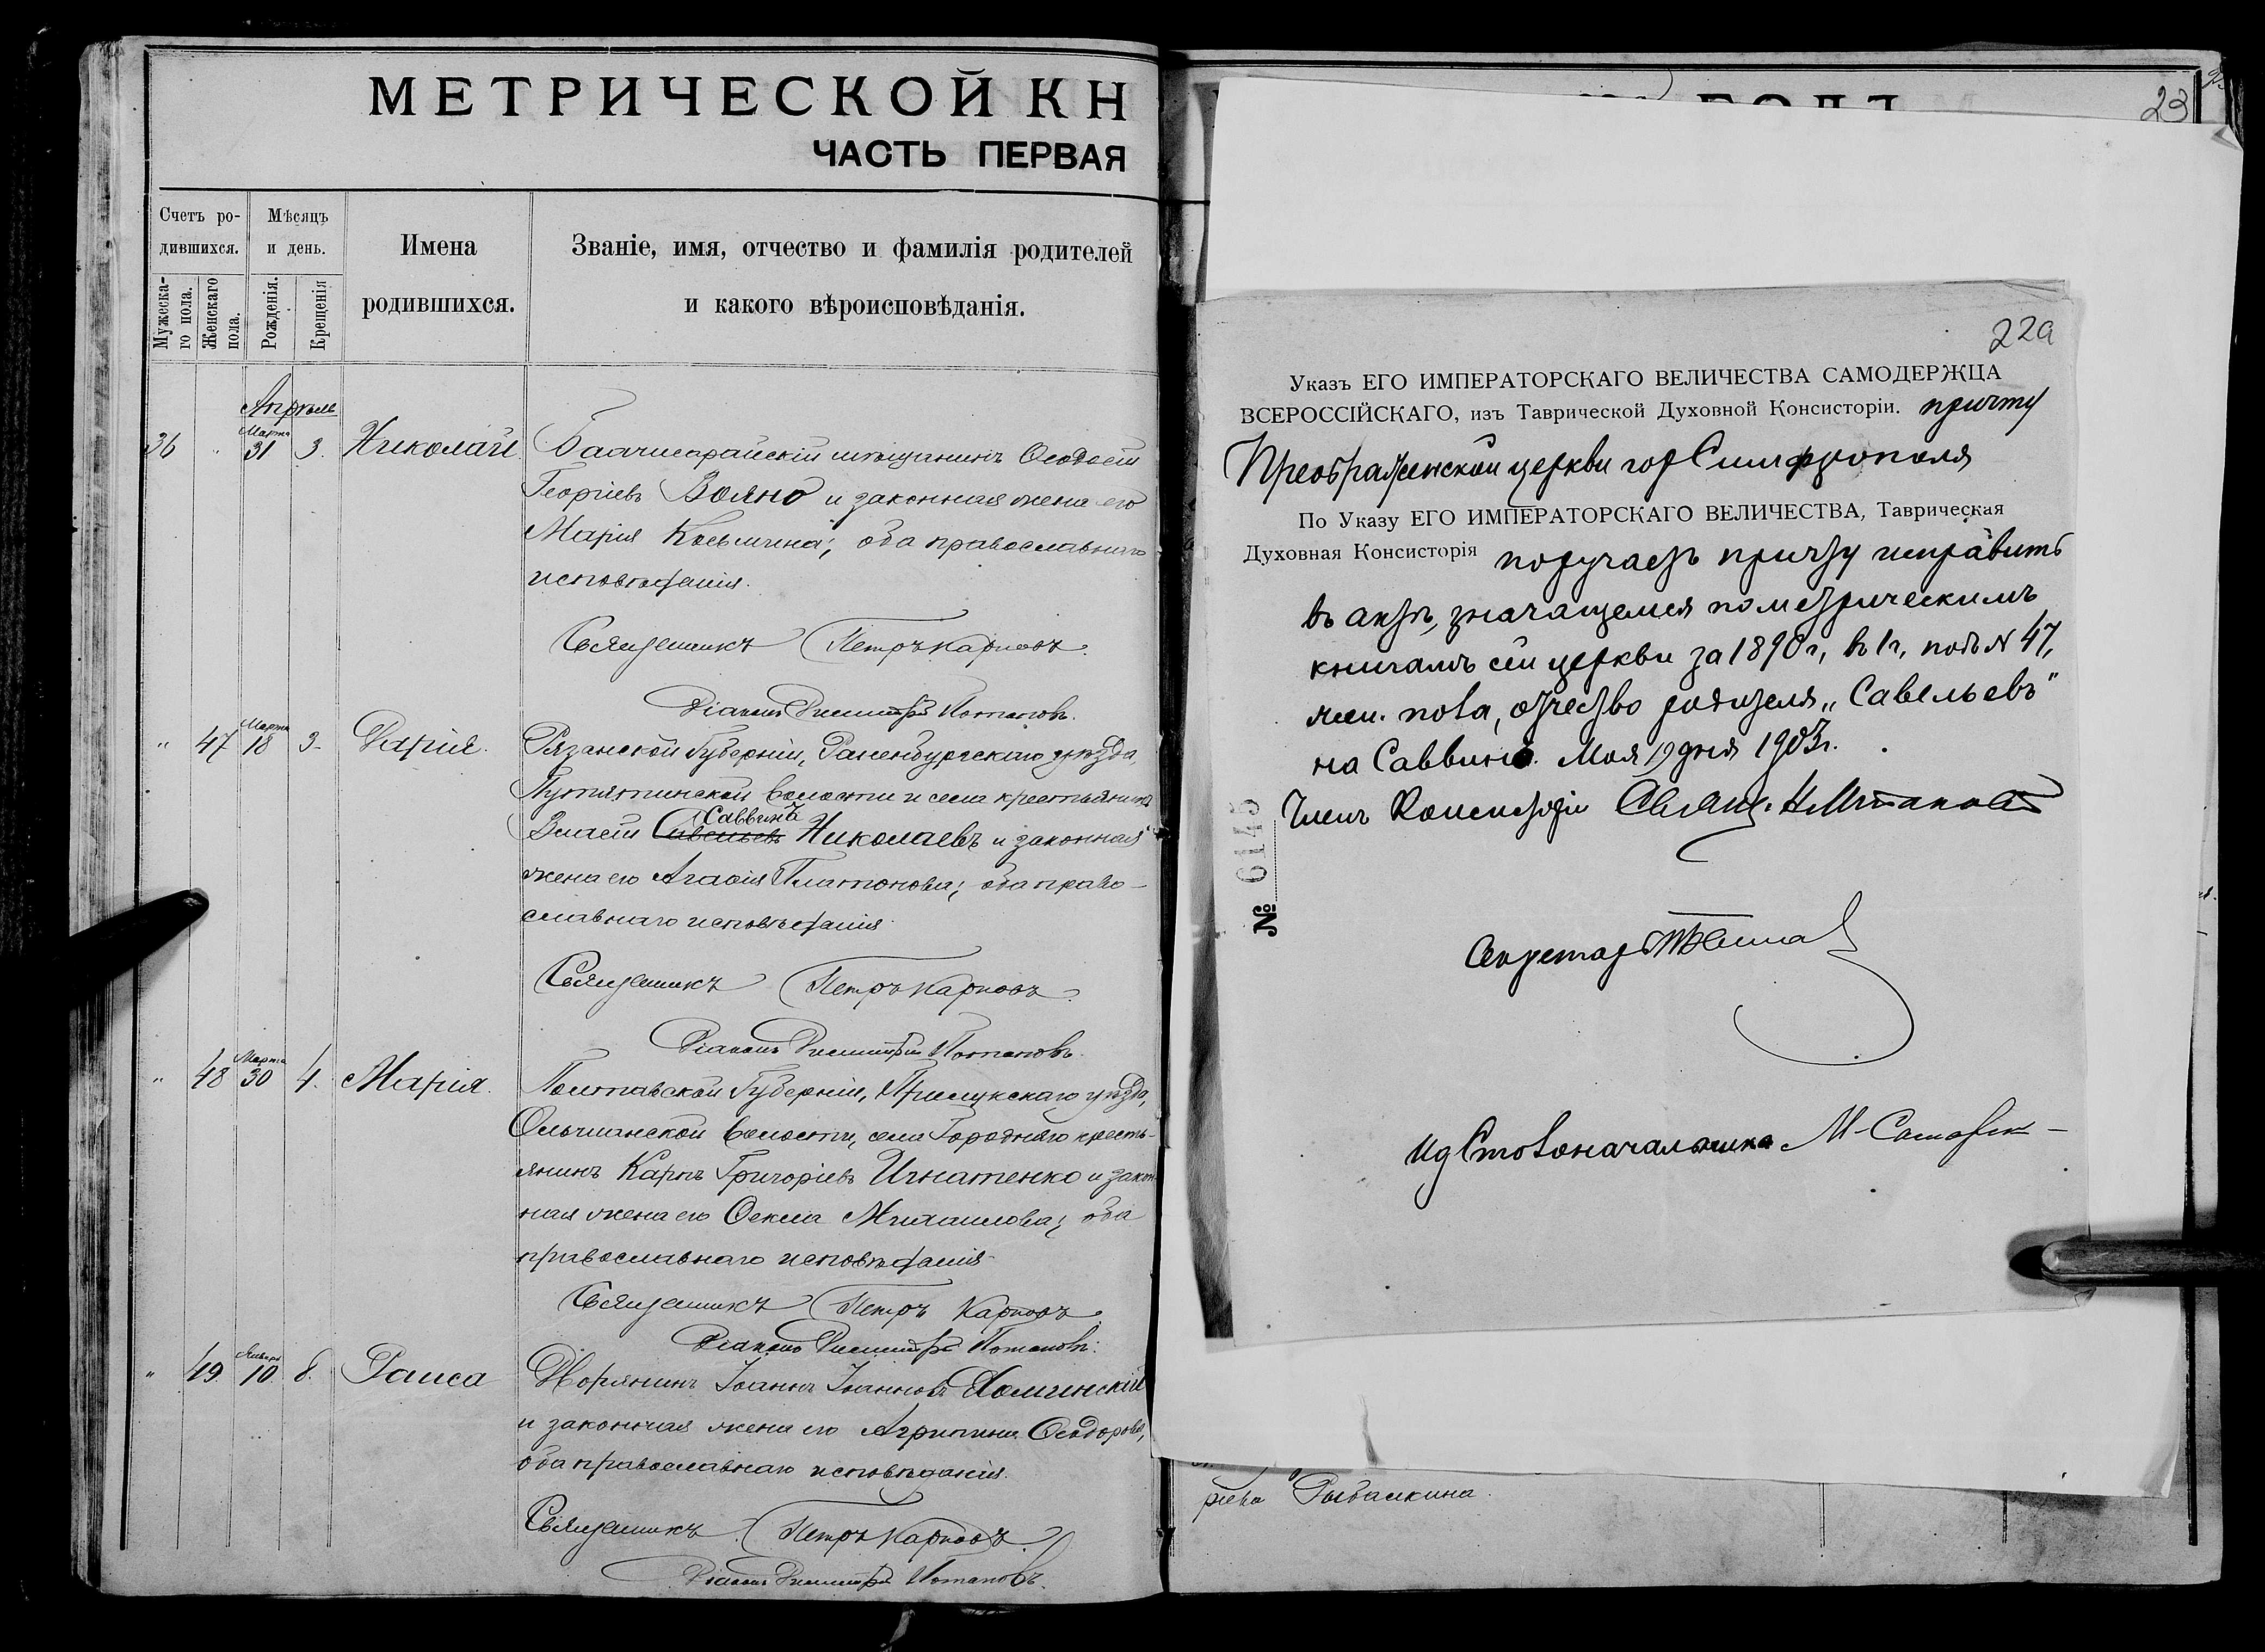 МЕТРИЧЕСКОЙ КН
ЧАСТЬ ПЕРВАЯ
Счетъ ро-
дившихся.
Мужеска-
го пола.
Женскаго
пола.
Мѣсяцъ
и день.
Рожденія.
Крещенія
Имена
родившихся.
Званіе, имя, отчество и фамилія родителей
и какого вѣроисповѣданія.
Апрѣль
36 " Марта 31 3. Николай.
Бахчисарайскій мѣщанинъ Ѳеодосій
Георгіевъ Вояно и законная жена его
Марія Косьмина; оба православнаго
исповѣданія.
Священникъ Петръ Карповъ.
Діаконъ Димитрій Потаповъ.
" 47 Марта 18 3. Дарія.
Рязанской Губерніи, Раненбургскаго уѣзда,
Путятинской волости и села крестьянинъ
Саввинъ
Власій Савельевъ Николаевъ и законная
жена его Агафія Платонова; оба право-
славнаго исповѣданія.
Священникъ Петръ Карповъ.
Діаконъ Димитрій Потаповъ.
" 48 Марта 30 4. Марія.
Полтавской Губерніи, Прилукскаго уѣзда,
Ольшанской волости, села Городняго кресть-
янинъ Карпъ Григоріевъ Игнатенко и закон-
ная жена его Ѳекла Михаилова; оба
православнаго исповѣданія.
Священникъ Петръ Карповъ.
Діаконъ Димитрій Потаповъ.
" 49. Января 10. 8. Раиса
Дворянинъ Іоаннъ Іоанновъ Хоминскій
и законная жена его Агрипина Ѳеодорова,
оба православнаго исповѣданія.
Священникъ Петръ Карповъ.
Діаконъ Димитрій Потаповъ.
23
22а
Указъ ЕГО ИМПЕРАТОРСКАГО ВЕЛИЧЕСТВА САМОДЕРЖЦА
ВСЕРОССІЙСКАГО, изъ Таврической Духовной Консисторіи. причту
Преображенской церкви гор Симферополя
По Указу ЕГО ИМПЕРАТОРСКАГО ВЕЛИЧЕСТВА, Таврическая
Духовная Консисторія поручаетъ причту исправить
въ актѣ, значащемся по метрическимъ
книгамъ сей церкви за 1890 г, въ 1 ч, подъ № 47,
жен. пола, отчество родителя „Савельевъ"
на Саввинъ. Мая 19 дня 1903 г.
Членъ Консисторіи Свящ.
№ 6145
Секретарь
Ид Столоначальника М.
Рыбалкина.